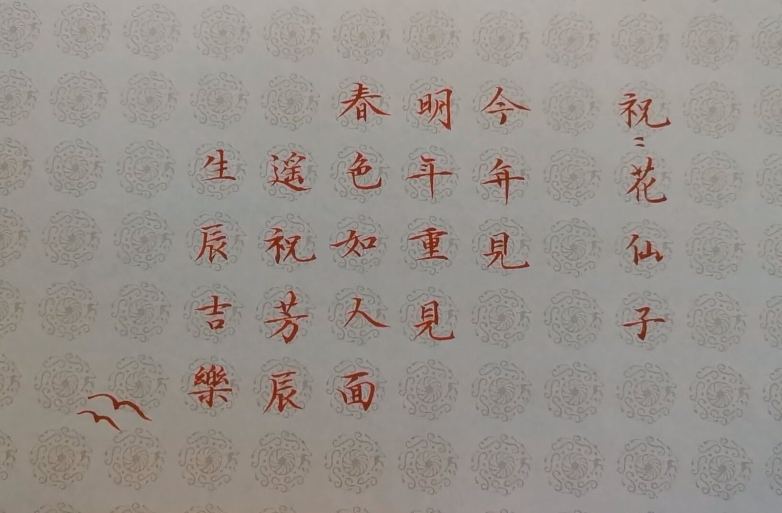 祝〻花仙子
今年見
明年重見
春色如人面
遙祝芳辰
生辰吉樂